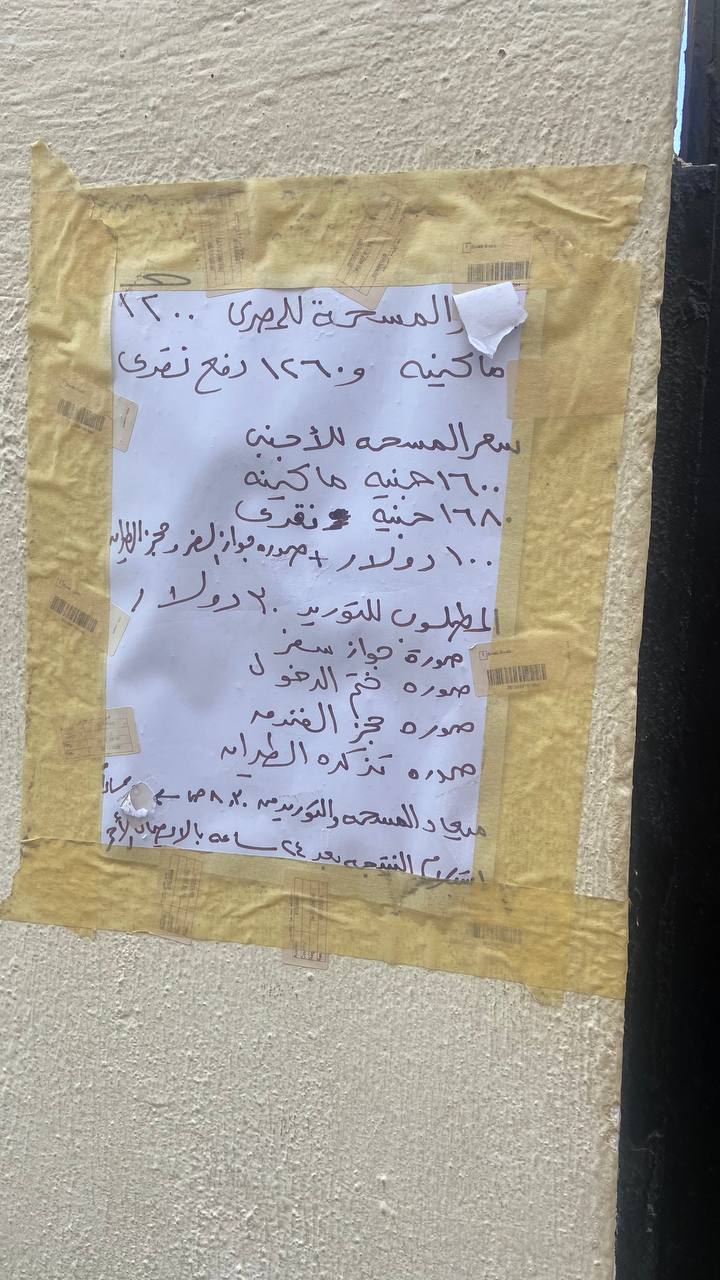 المسحة للمصرى ١٢٠٠
ماكينه و ١٢٦٠ دفع نقدى
سعر المسحه للأجنبى
١٦٠٠ جنيه ماكينه
١٦٨٠ جنيه نقدى
١٠٠ دولار + صوره جواز السفر وحجز الطيران
المطلوب للتوريد ٣٠ دولار
صورة جواز سفر
صوره ختم الدخول
صوره حجز الفندق
صوره تذكره الطيران
ميعاد المسحه والتوريد من ٨,٣٠ ص
النتيجه بعد ٢٤ ساعه بالايصال